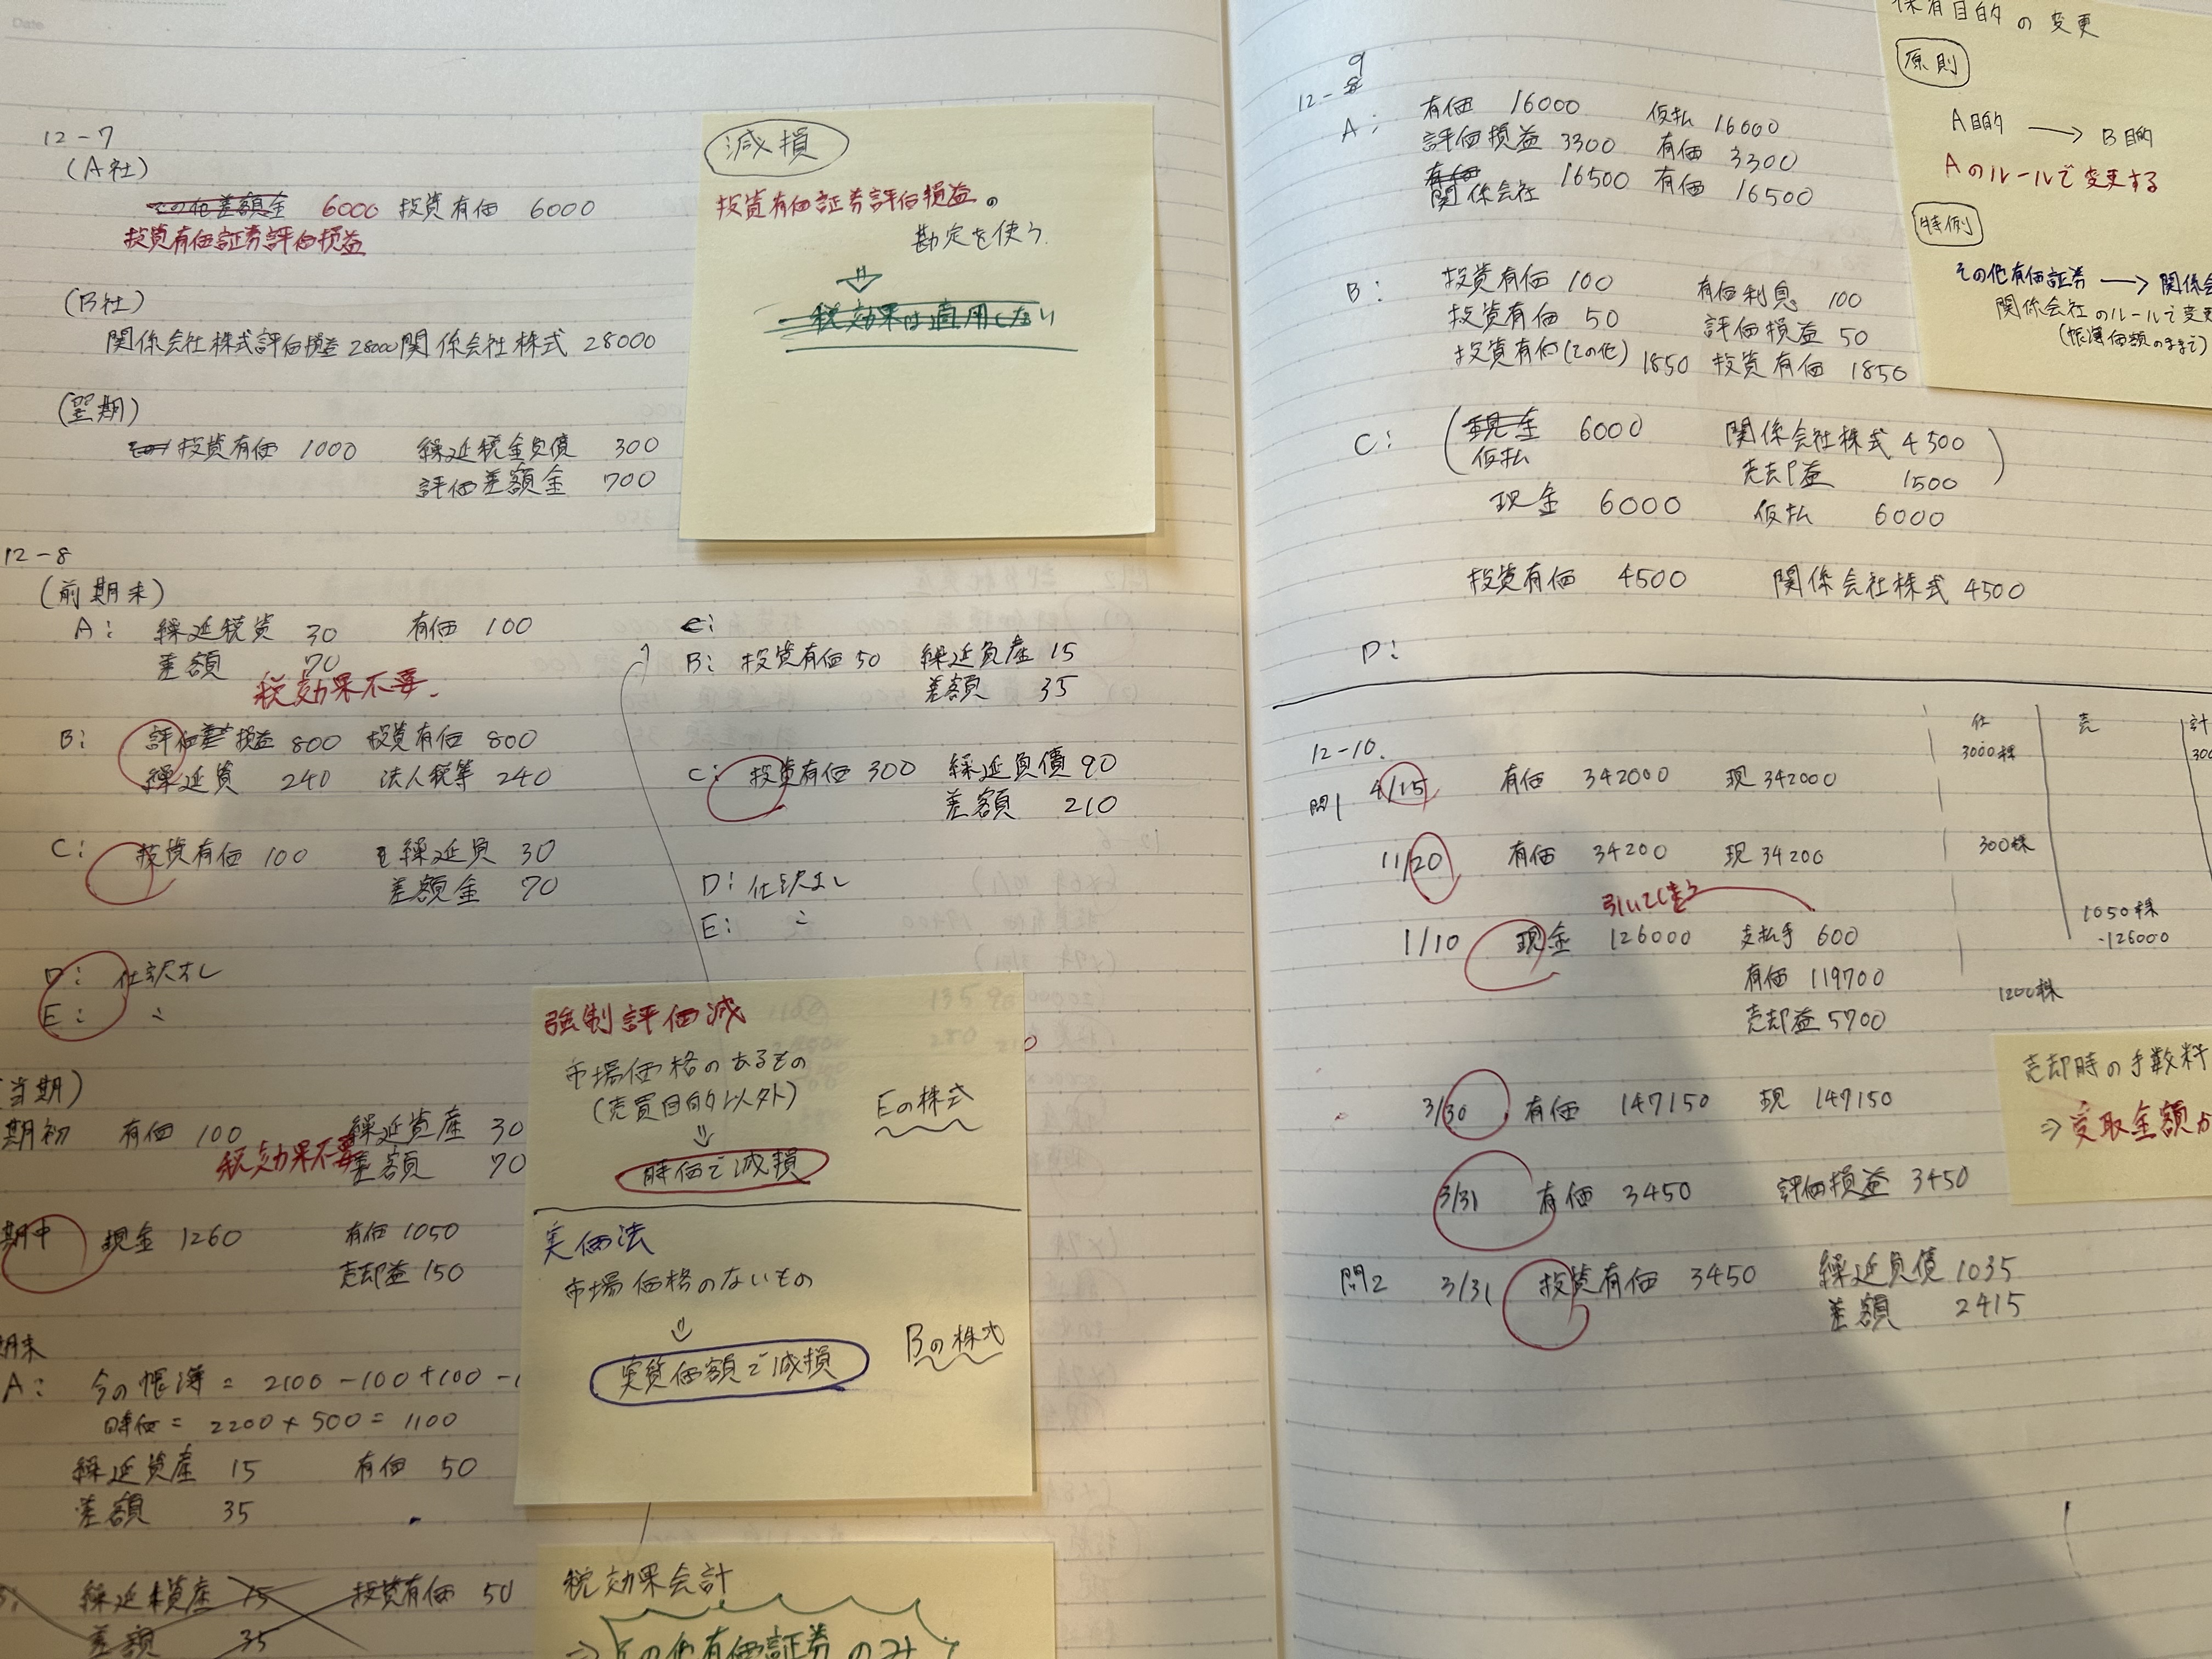 Date
12-7
(A社)
その他差額金 6000 投資有価 6000
投資有価証券評価損益
(B社)
関係会社株式評価損益 28000 関係会社株式 28000
(翌期)
投資有価 1000 繰延税金負債 300
評価差額金 700
減損
投資有価証券評価損益の
勘定を使う
⇓
税効果は適用しない
12-8
(前期末)
A: 繰延税資 30 有価 100
差額 70
税効果不要.
B: 評価 損益 800 投資有価 800
繰延資 240 法人税等 240
C: 投資有価 100 繰延負 30
差額金 70
D: 仕訳なし
E: 〃
(当期)
期初 有価 100 繰延資産 30
税効果不要 差額 70
期中 現金 1260 有価 1050
売却益 150
期末
A: 今の帳簿 = 2100 - 100 + 100 -
時価 = 2200 × 500 = 1100
繰延資産 15 有価 50
差額 35
繰延資産 15 投資有価 50
差額 35
C:
B: 投資有価 50 繰延負産 15
差額 35
C: 投資有価 300 繰延負債 90
差額 210
D: 仕訳なし
E: 〃
強制評価減
市場価格のあるもの
(売買目的以外)
Eの株式
⇓
時価で減損
実価法
市場価格のないもの
⇓
Bの株式
実質価額で減損
税効果会計
⇒ その他有価証券のみ
12-9
A: 有価 16000 仮払 16000
評価損益 3300 有価 3300
有価
関係会社 16500 有価 16500
B: 投資有価 100 有価利息 100
投資有価 50 評価損益 50
投資有価(その他) 1850 投資有価 1850
C: (現金 6000 関係会社株式 4500
仮払 売却益 1500)
現金 6000 仮払 6000
投資有価 4500 関係会社株式 4500
D:
保有目的の変更
原則
A目的 → B目的
Aのルールで変更する
特例
その他有価証券 → 関係会
関係会社のルールで変更
(帳簿価額のままで)
12-10.
仕 売 計
問1 4/15 有価 342000 現 342000
3000株 300
11/20 有価 34200 現 34200
300株
引いてしまう
1/10 現金 126000 支払手 600
有価 119700
売却益 5700
1050株
-126000
1200株
3/30 有価 147150 現 147150
3/31 有価 3450 評価損益 3450
問2 3/31 投資有価 3450 繰延負債 1035
差額 2415
売却時の手数料
⇒ 受取金額か